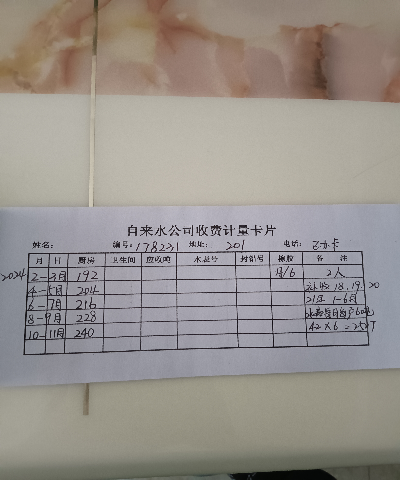 自来水公司收费计量卡片
姓名: 编号: 178231 地址: 201 电话: 已办卡
月 日 厨房 卫生间 应收吨 水表号 封铅号 换胶 备 注
2024 2-3月 192 月/6 2人
4-5月 204 补收 18.19.20
6-7月 216 21年 1-6月
8-9月 228
10-11月 240 42×6=252